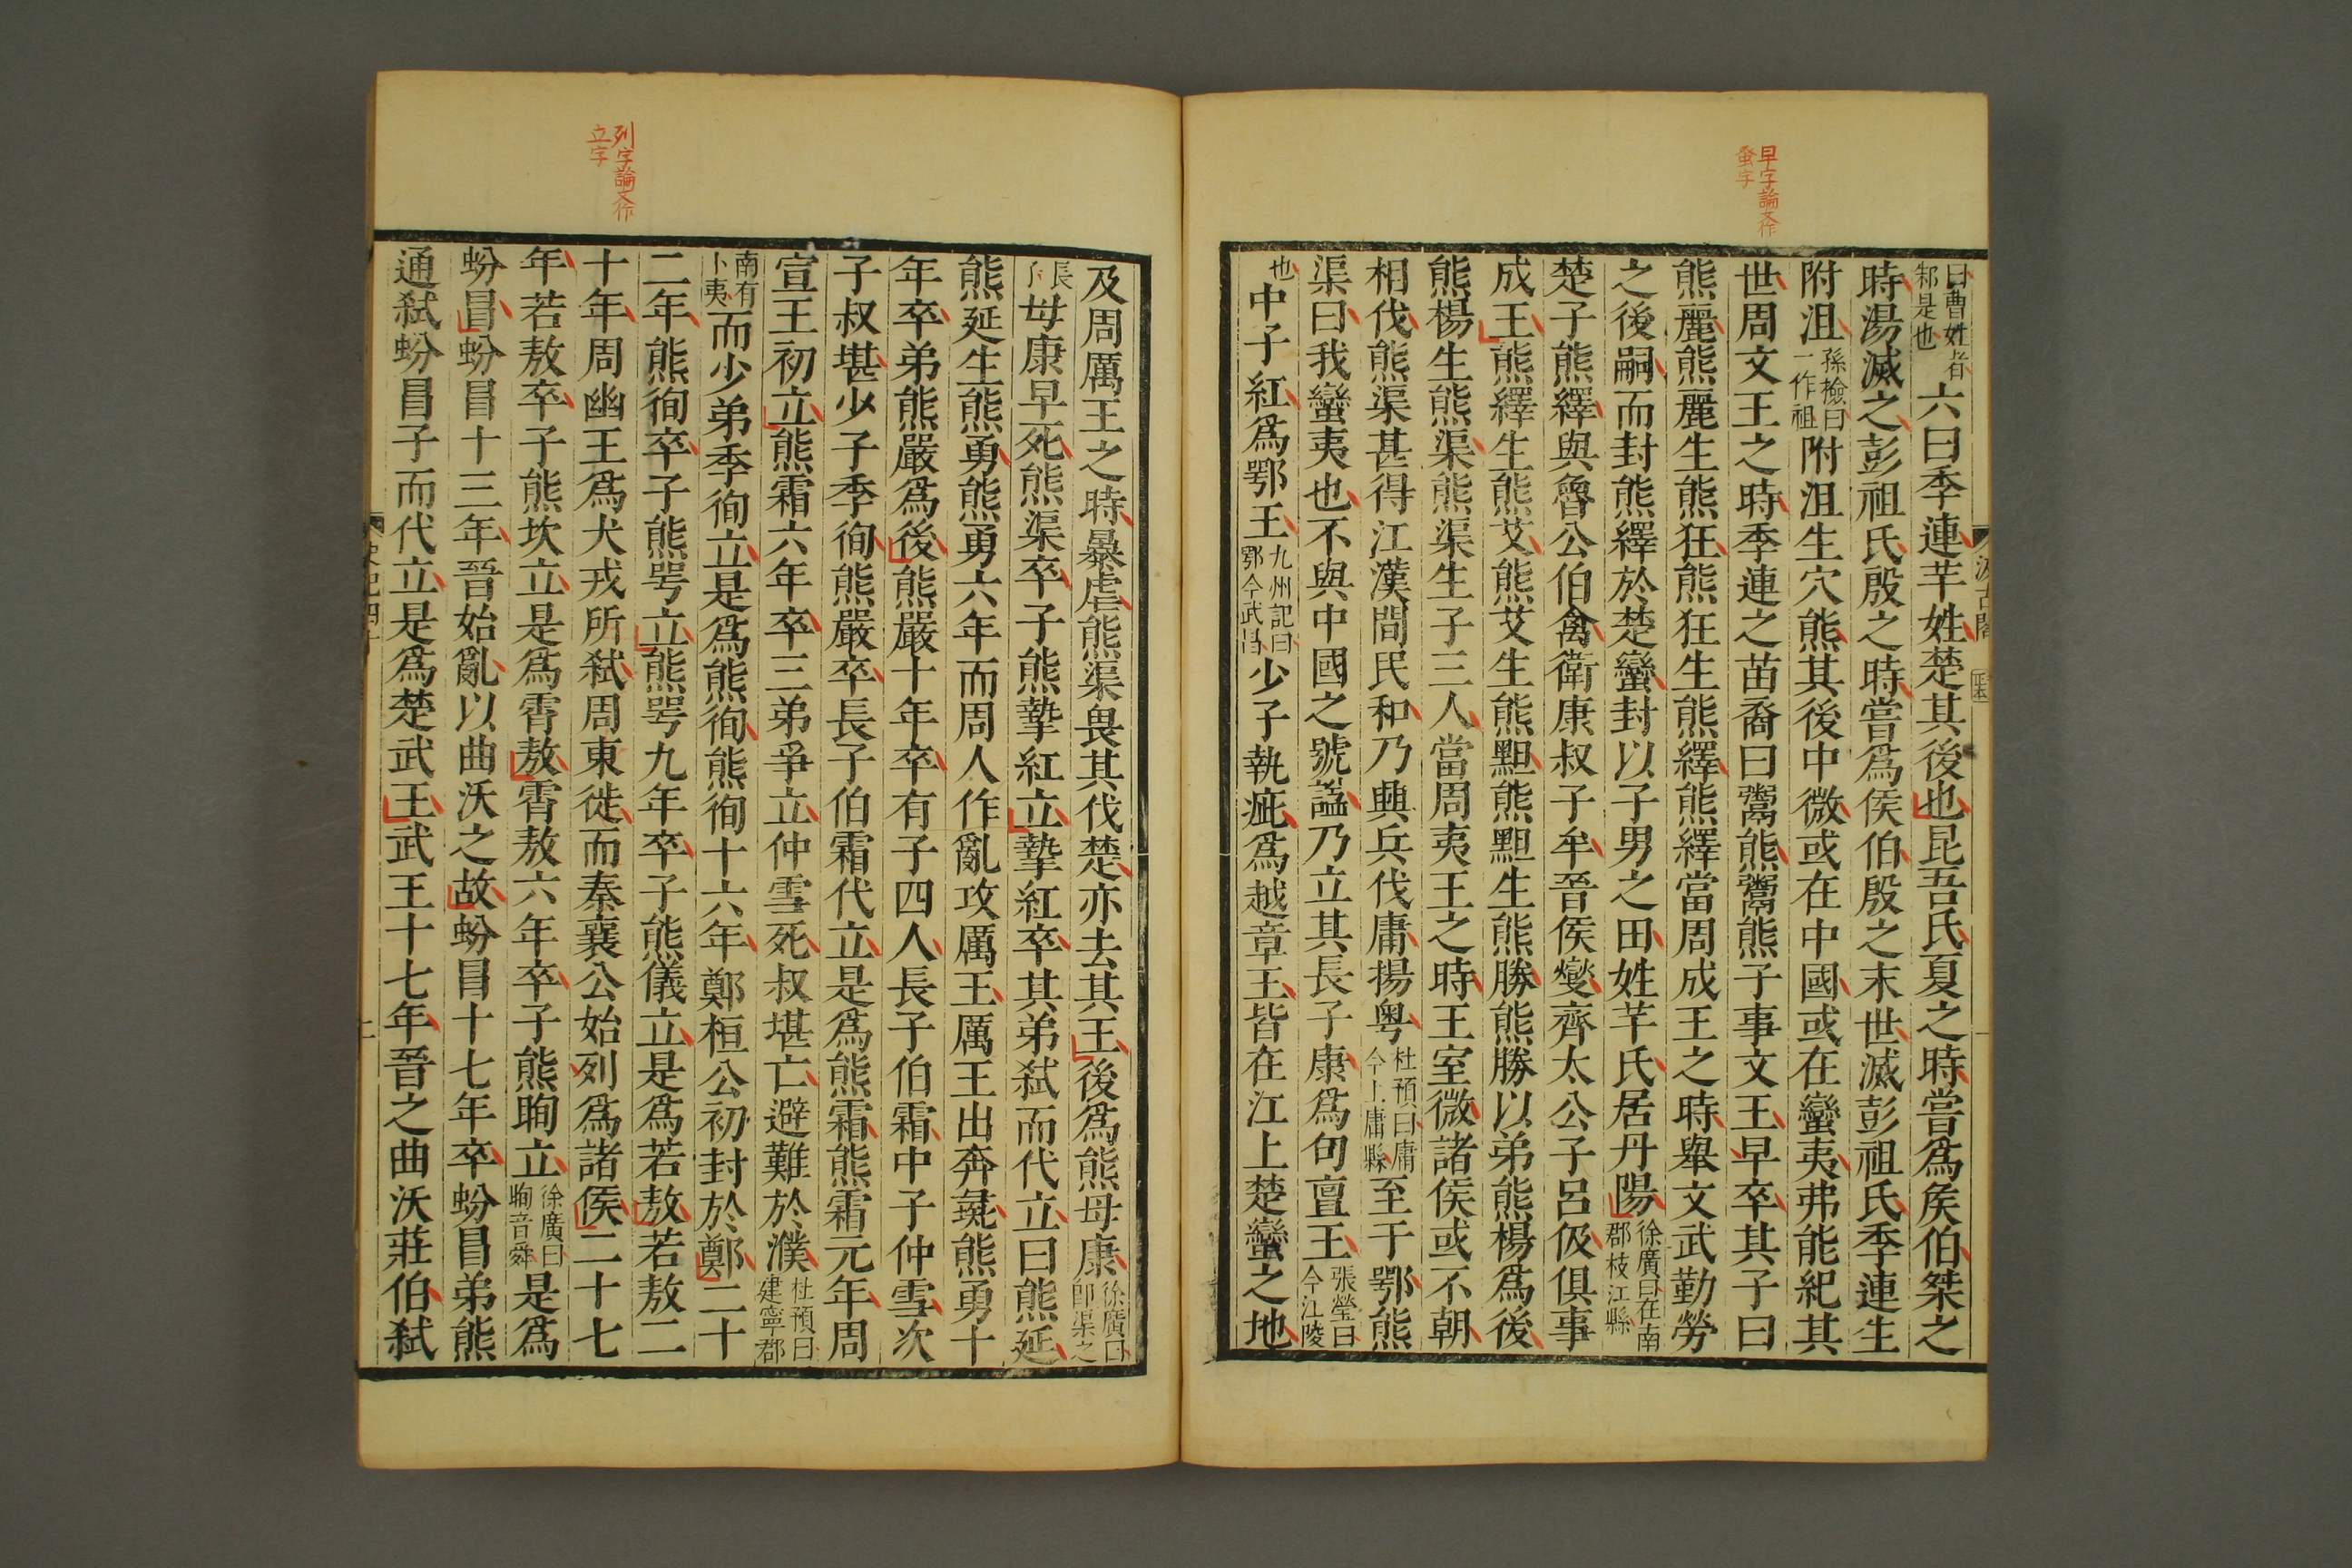 早字論文作
蚤字
曰曹姓者
邾是也
六曰季連芊姓楚其後也昆吾氏夏之時嘗爲矦伯桀之
時湯滅之彭祖氏殷之時嘗爲侯伯殷之末世滅彭祖氏季連生
附沮
孫檢曰
一作祖
附沮生穴熊其後中微或在中國或在蠻夷弗能紀其
世周文王之時季連之苗裔曰鬻熊鬻熊子事文王早卒其子曰
熊麗熊麗生熊狂熊狂生熊繹熊繹當周成王之時舉文武勤勞
之後嗣而封熊繹於楚蠻封以子男之田姓芊氏居丹陽
徐廣曰在南
郡枝江縣
楚子熊繹與魯公伯禽衛康叔子牟晉侯燮齊太公子呂伋俱事
成王熊繹生熊艾熊艾生熊䵣熊䵣生熊勝熊勝以弟熊楊爲後
熊楊生熊渠熊渠生子三人當周夷王之時王室微諸侯或不朝
相伐熊渠甚得江漢間民和乃興兵伐庸揚粵
杜預曰庸
今上庸縣
至于鄂熊
渠曰我蠻夷也不與中國之號諡乃立其長子康爲句亶王
張瑩曰
今江陵
也
中子紅爲鄂王
九州記曰
鄂今武昌
少子執疵爲越章王皆在江上楚蠻之地
汲古閣
史記四十
列字論文作
立字
及周厲王之時暴虐熊渠畏其伐楚亦去其王後爲熊母康
徐廣曰
卽渠之
長
母康早死熊渠卒子熊摯紅立摯紅卒其弟弑而代立曰熊延
熊延生熊勇熊勇六年而周人作亂攻厲王厲王出奔彘熊勇十
年卒弟熊嚴爲後熊嚴十年卒有子四人長子伯霜中子仲雪次
子叔堪少子季徇熊嚴卒長子伯霜代立是爲熊霜熊霜元年周
宣王初立熊霜六年卒三弟爭立仲雪死叔堪亡避難於濮
杜預曰
建寧郡
南有
卜夷
而少弟季徇立是爲熊徇熊徇十六年鄭桓公初封於鄭二十
二年熊徇卒子熊咢立熊咢九年卒子熊儀立是爲若敖若敖二
十年周幽王爲犬戎所弑周東徙而秦襄公始列爲諸侯二十七
年若敖卒子熊坎立是爲霄敖霄敖六年卒子熊眴立
徐廣曰
眴音舜
是爲
蚡冒蚡冒十三年晉始亂以曲沃之故蚡冒十七年卒蚡冒弟熊
通弑蚡冒子而代立是爲楚武王武王十七年晉之曲沃莊伯弑